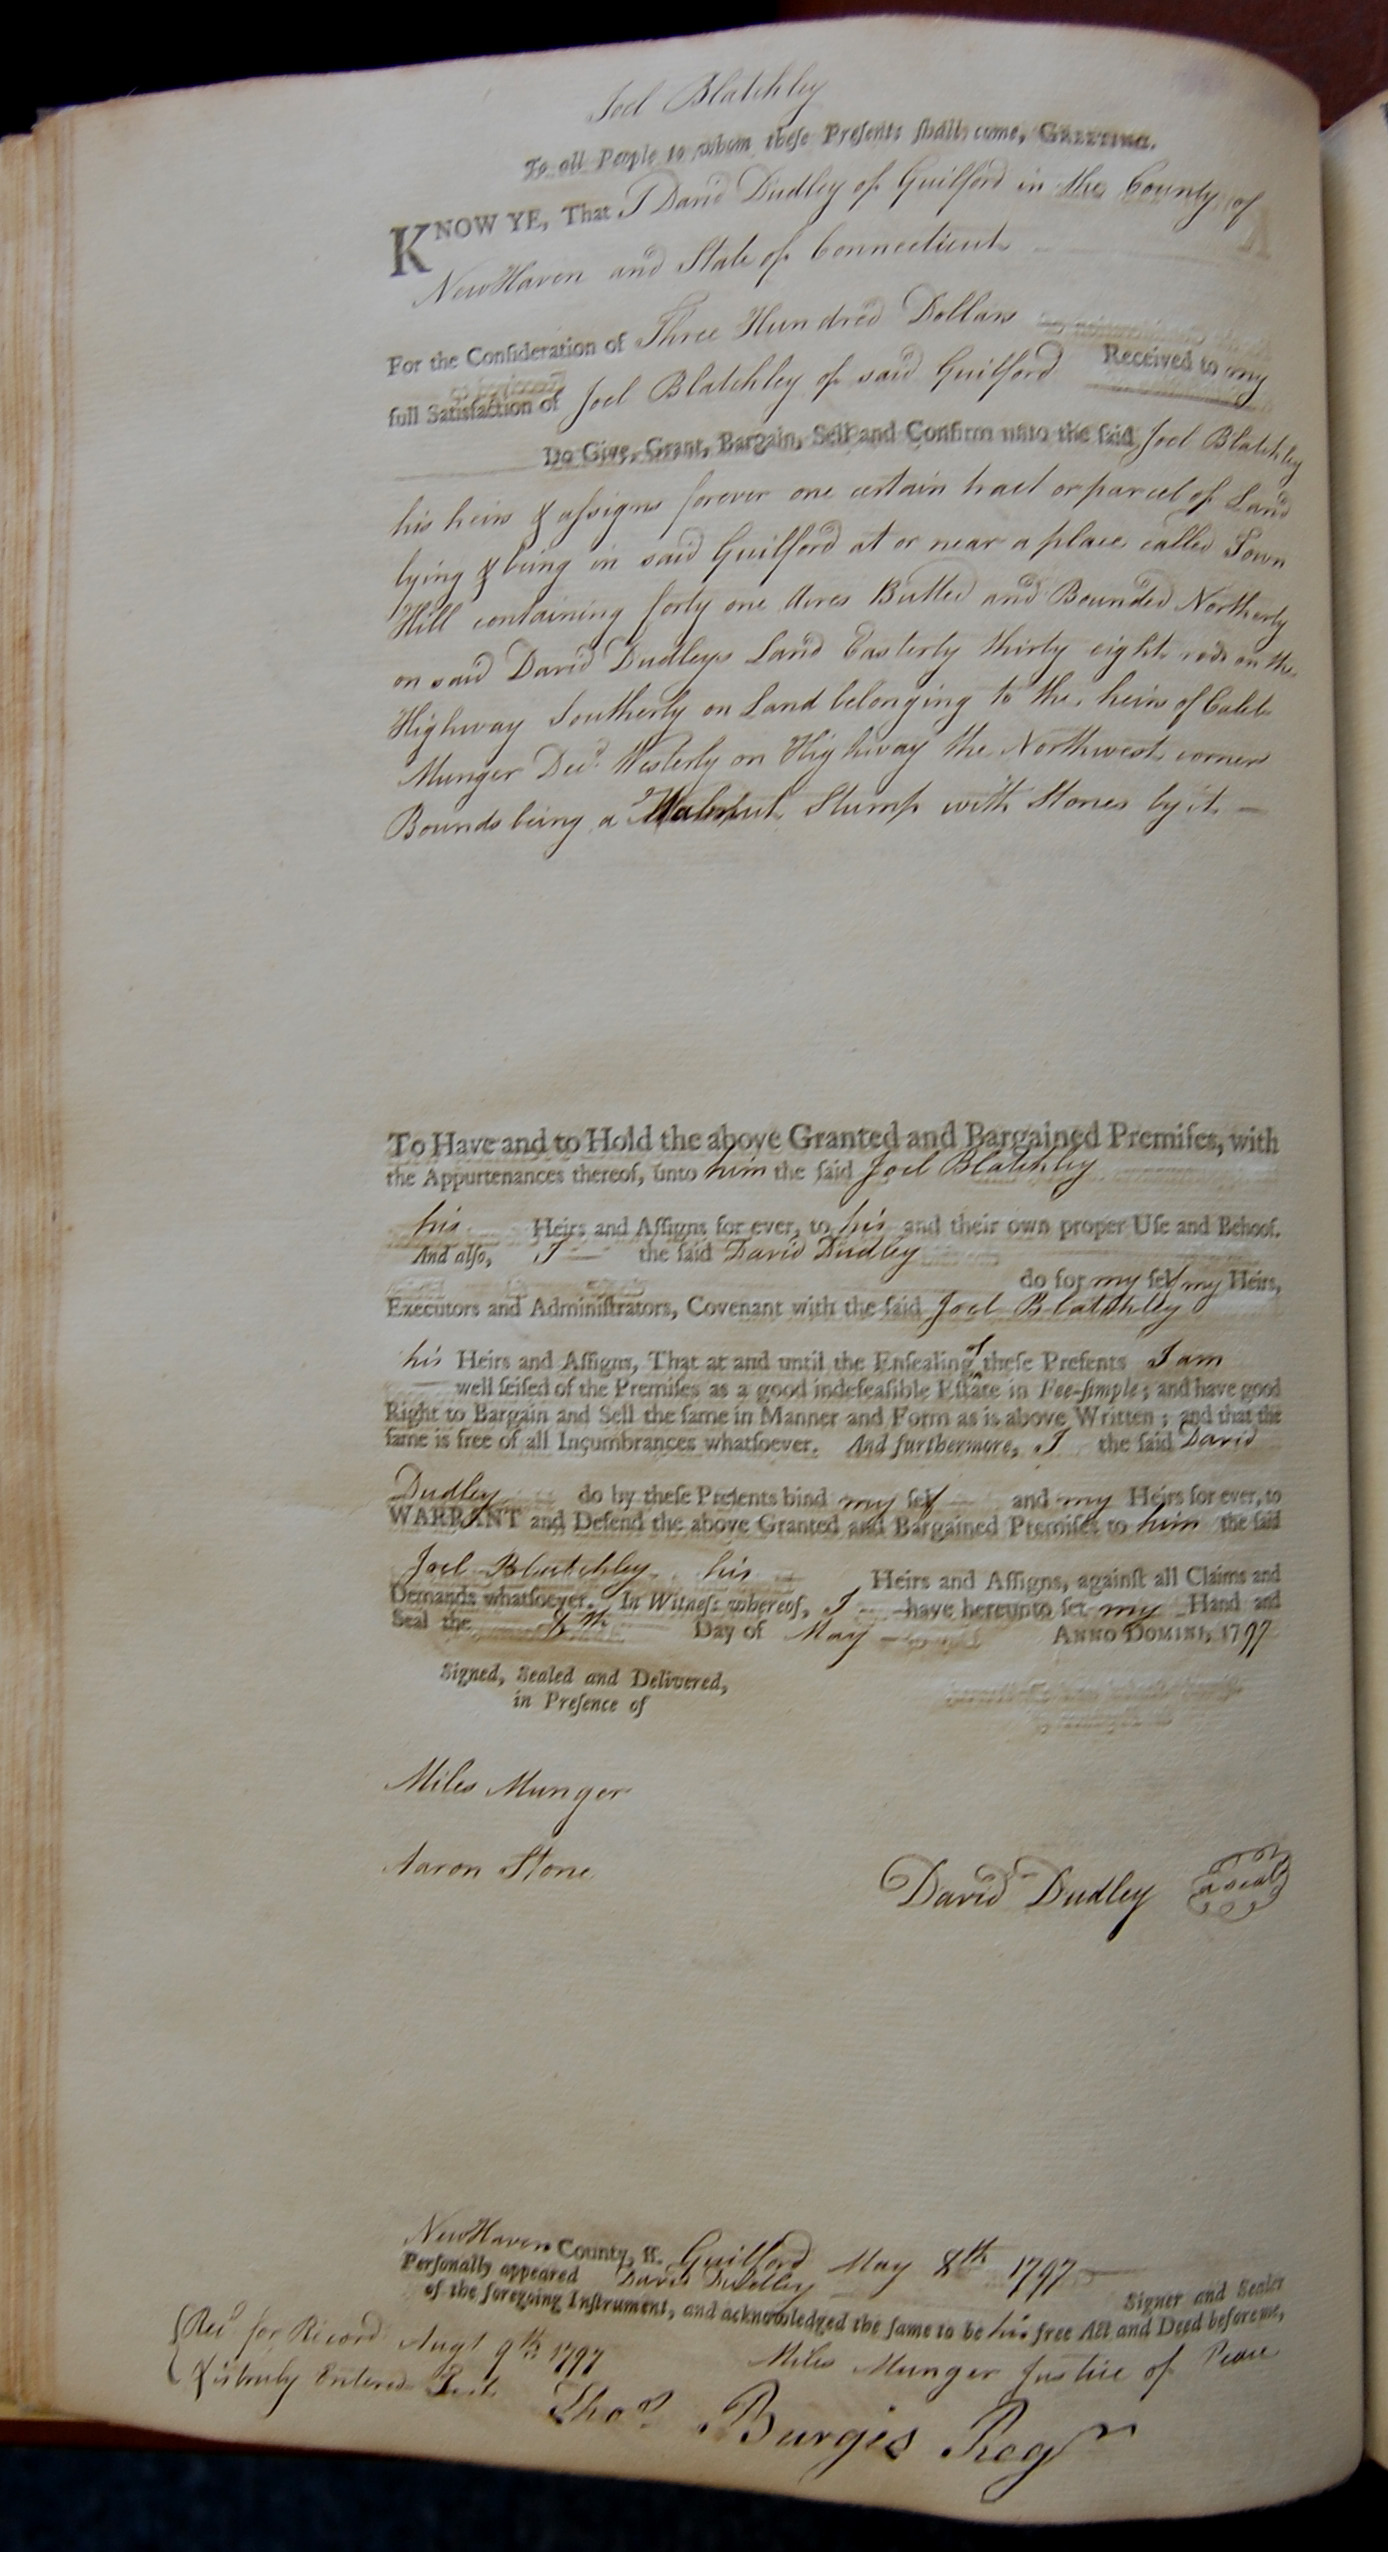 Joel Blatchley
To all People to whom these Presents shall come, GREETING.
KNOW YE, That I David Dudley of Guilford in the County of
New Haven and State of Connecticut
For the Consideration of Three Hundred Dollars
Received to my
full Satisfaction of Joel Blatchley of said Guilford
Do Give, Grant, Bargain, Sell and Confirm unto the said Joel Blatchley
his heirs & assigns forever one certain tract or parcel of Land
lying & being in said Guilford at or near a place called Town
Hill containing forty one Acres Butted and Bounded Northerly
on said David Dudleys Land Easterly thirty eight rods on the
Highway Southerly on Land belonging to the heirs of Caleb
Munger Decd. Westerly on Highway the Northwest corner
Bounds being a Walnut Stump with Stones by it —
To Have and to Hold the above Granted and Bargained Premises, with
the Appurtenances thereof, unto him the said Joel Blatchley
his Heirs and Assigns for ever, to his and their own proper Use and Behoof.
And also, I the said David Dudley
do for my self my Heirs,
Executors and Administrators, Covenant with the said Joel Blatchley
his Heirs and Assigns, That at and until the Ensealing of these Presents I am
well seised of the Premises as a good indefeasible Estate in Fee-simple; and have good
Right to Bargain and Sell the same in Manner and Form as is above Written; and that the
same is free of all Incumbrances whatsoever. And furthermore, I the said David
Dudley do by these Presents bind my self and my Heirs for ever, to
WARRANT and Defend the above Granted and Bargained Premises to him the said
Joel Blatchley his Heirs and Assigns, against all Claims and
Demands whatsoever. In Witness whereof, I have hereunto set my Hand and
Seal the 8th Day of May ANNO DOMINI, 1797
Signed, Sealed and Delivered,
in Presence of
Miles Munger
Aaron Stone
David Dudley a seal
New Haven County, ss. Guilford May 8th 1797
Personally appeared David Dudley Signer and Sealer
of the foregoing Instrument, and acknowledged the same to be his free Act and Deed before me,
Miles Munger Justice of Peace
Recd for Record Augt 9th 1797
& is truly Entered Test
Thos Burgis Regr